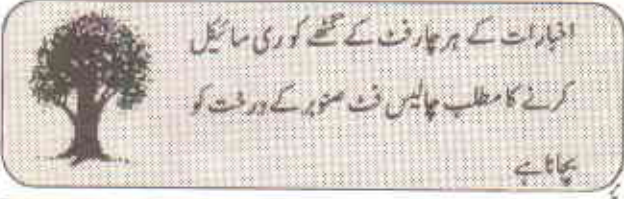 اخبارات کے ہر چار فٹ کے گٹھے کو ری سائیکل
کرنے کا مطلب چالیس فٹ صنوبر کے درخت کو
بچانا ہے